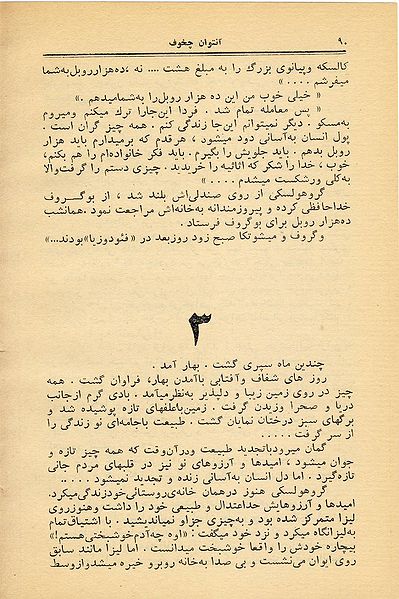 ۹۰
آنتوان چخوف
کالسکه وپیانوی بزرگ را به مبلغ هشت .... نه ، ده‌هزارروبل‌به‌شما
میفرشم . . . . »
« خیلی خوب من این ده هزار روبل‌را به‌شمامیدهم . »
« پس معامله تمام شد . فردا این‌جارا ترك میکنم ومیروم
به‌مسکو . دیگر نمیتوانم این‌جا زندگی کنم . همه چیز گران است .
پول انسان به‌آسانی دود میشود ، هرقدم که برمیدارم باید هزار
روبل بدهم . باید جلویش را بگیرم . باید فکر خانواده‌ام را هم بکنم،
خوب ، خدا را شکر که اثاثیه را خریدید . چیزی دستم را گرفت‌والا
به‌کلی ورشکست میشدم . . . . »
گروهولسکی از روی صندلی‌اش بلند شد ، از بوگــروف
خداحافظی کرده و پیروزمندانه به‌خانه‌اش مراجعت نمود .همانشب
ده‌هزار روبل برای بوگروف فرستاد .
وگروف و میشوتکا صبح زود روزبعد در « فئودوزیا»بودند...»
۳
چندین ماه سپری گشت . بهار آمد .
روز های شفاف وآفتابی باآمدن بهار، فراوان گشت . همه
چیز در روی زمین زیبا و دلپذیر به‌نظرمیآمد . بادی گرم ازجانب
دریا و صحرا وزیدن گرفت . زمین‌باعلفهای تازه پوشیده شد و
برگهای سبز درختان نمایان گشت . طبیعت باجامه‌ای نو زندگی را
از سر گرفت . . . . .
گمان میرودباتجدید طبیعت ودرآن‌وقت که همه چیز تازه و
جوان میشود ، امیدها و آرزوهای نو نیز در قلبهای مردم جانی
تازه‌گیرد . اما دل انسان به‌آسانی زنده و تجدید نمیشود . . . . .
گروهولسکی هنوز درهمان خانه‌ی‌روستائی‌خودزندگی‌میکرد.
امیدها و آرزوهایش حداعتدال و طبیعی خود را داشت وهنوزروی
لیزا متمرکز شده بود و به‌چیزی جزاو نمیاندیشید . با اشتیاق‌تمام
به‌لیزانگاه میکرد و نزد خود میگفت : «اوه چه‌آدم‌خوشبختی‌هستم!»
بیچاره خودش را واقعا خوشبخت میدانست . اما لیزا مانند سابق
روی ایوان می‌نشست و بی صدا به‌خانه روبرو خیره میشد.ازوسط